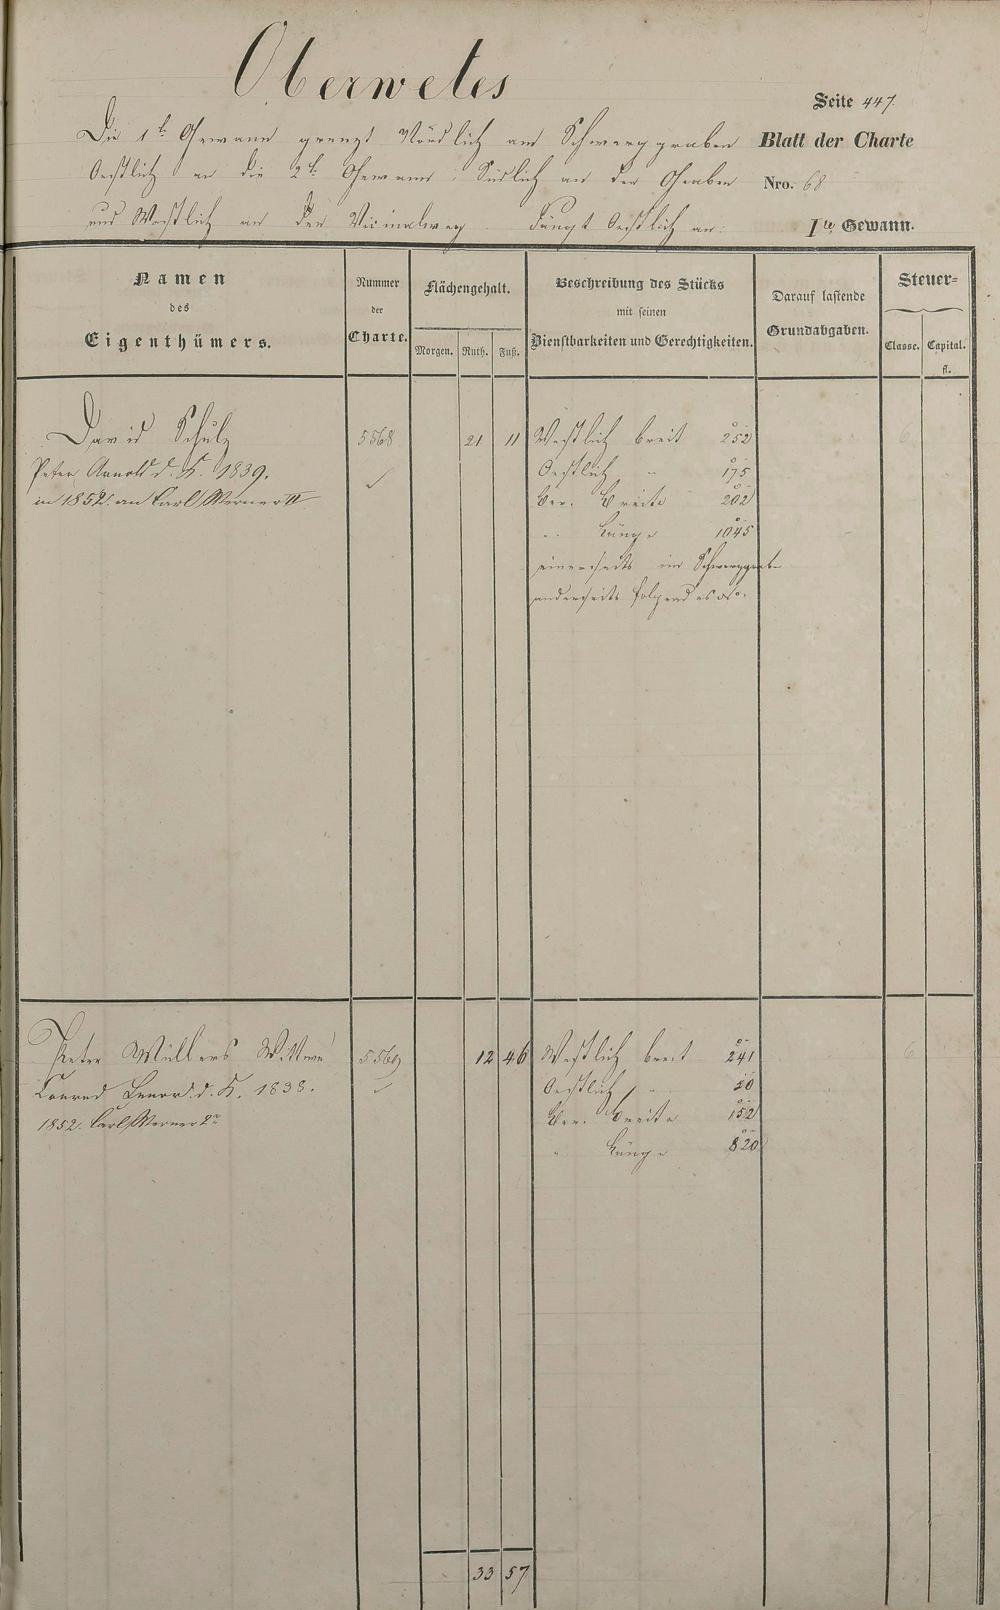 Oberwetes
Seite 447.
Die 1te Gewann grenzt Nördlich am Schwerzgraben
Blatt der Charte
Oestlich an die 2te Gewann: Südlich an der Graben
Nro. 68
und Westlich an den Vicinalweg. Fängt Oestlich an:
Ite Gewann.
Namen
des
Eigenthümers.
Nummer
der
Charte.
Flächengehalt.
Morgen. Ruth. Fuß.
Beschreibung des Stücks
mit seinen
Dienstbarkeiten und Gerechtigkeiten.
Darauf lastende
Grundabgaben.
Steuer=
Classe. Capital.
fl.
David Schulz 5568 21 11 Westlich breit 252 6
Peter Arnold d. K. 1839. Oestlich " 175
in 1852. an Carl Werner II Ver. Breite 202
" Länge 1045
einerseits im
anderseits folgendes No.
Peter Müllers Wittwe 5569 12 46 Westlich breit 241 6
Conrad d. K. 1838. Oestlich " 50
1852. Carl Werner 2r Ver. Breite 152
" Länge 820
33 57